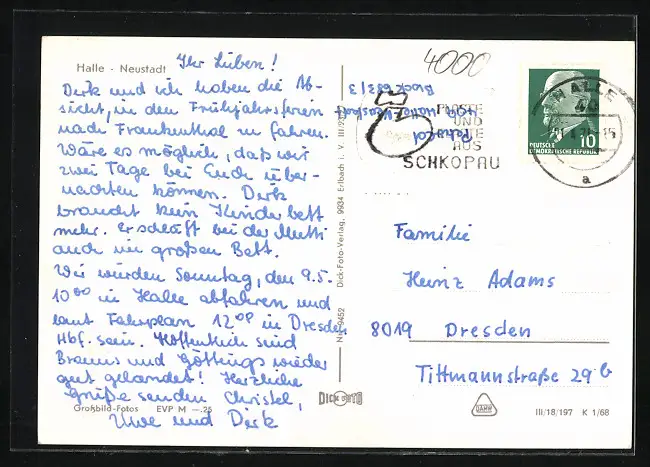 Halle - Neustadt
Ihr Lieben!
Dirk und ich haben die Ab-
sicht, in den Frühjahrsferien
nach Frankenthal zu fahren.
Wäre es möglich, daß wir
zwei Tage bei Euch über-
nachten können. Dirk
braucht kein Kinderbett
mehr. Er schläft bei der Mutti
auch im großen Bett.
Wir würden Sonntag, den 9.5.
10⁰⁰ in Halle abfahren und
laut Fahrplan 12⁰⁸ in Dresden
Hbf. sein. Hoffentlich sind
Brauns und Göttings wieder
gut gelandet! Herzliche
Grüße senden Christel,
Uwe und Dirk
Großbild-Fotos EVP M -.25
Dick-Foto-Verlag, 9934 Erlbach i. V.
DICK FOTO
4000
Block 683/3
PLASTE
UND
AUS
SCHKOPAU
HALLE
a
DEUTSCHE
DEMOKRATISCHE REPUBLIK
10
Familie
Heinz Adams
8019 Dresden
Tittmannstraße 29 b
III/18/197 K 1/68